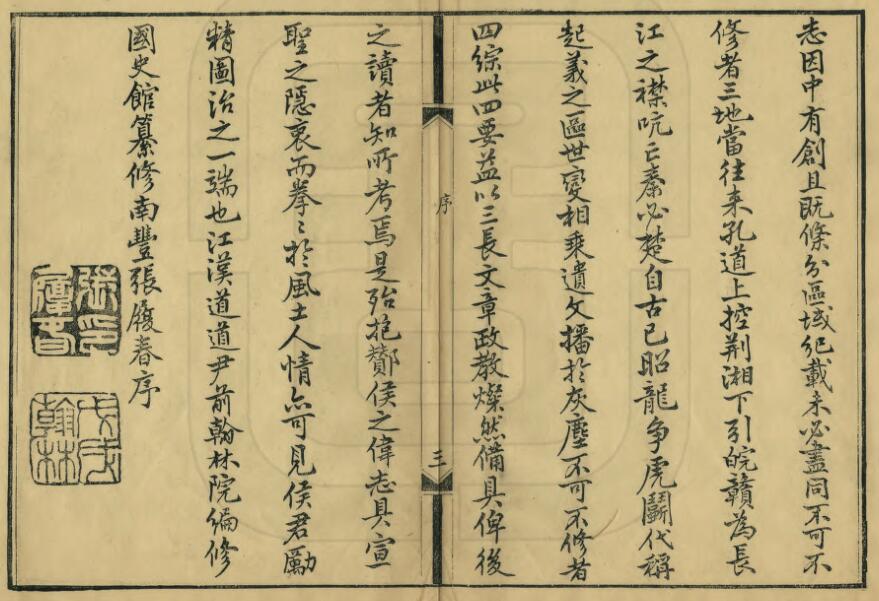 志因中有創且既條分區域紀載未必盡同不可不
修者三地當往來孔道上控荆湘下引皖贛為長
江之襟吭亡秦必楚自古已昭龍争虎鬭代稱
起義之區世變相乘遺文播於灰塵不可不修者
四綜此四要益以三長文章政教燦然備具俾後
序
三
之讀者知所考焉是殆抱酇侯之偉志具宣
聖之隱衷而拳〻於風土人情亦可見侯君勵
精圖治之一端也江漢道道尹前翰林院編修
國史館纂修南豐張履春序
張印履春
戊戌翰林